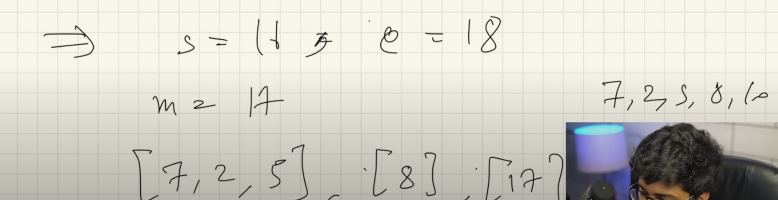 ⇒ s = 17, e = 18
m = 17
7, 2, 5, 8, 10
[7, 2, 5], [8], [17]